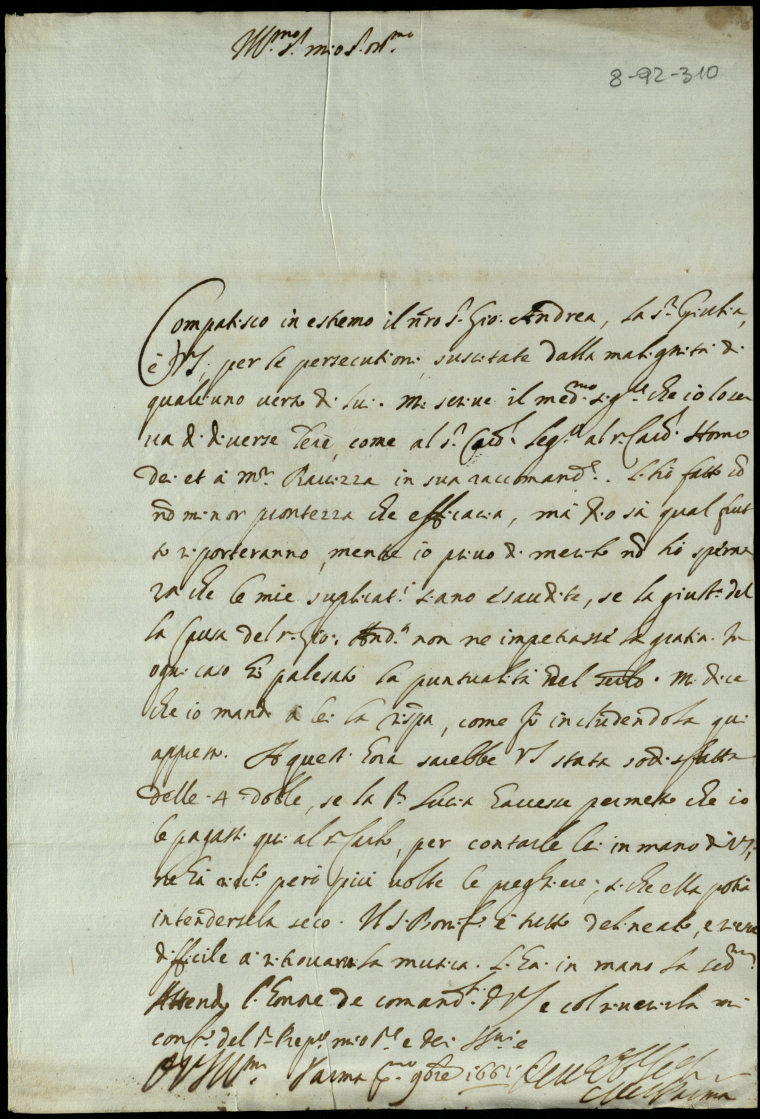 Ill.mo S.r mio S.r
8-92-310
Compatisco in estremo il nr̃o S.r Gio: Andrea, la S.ra Giulia,
è VS, per le persecutioni suscitate dalla malignità di
qualcuno verso di lui. Mi scrive il med.mo che io lo ser
va di diverse lr̃e, come al S.r Card. leg.to al S.r Card. Homo
dei et à Mr Ravizza in sua raccomand.e. L'hò fatto cõ
nõ minor prontezza che efficacia, mà Dio sà qual frut
to riporteranno, mentre io privo di merito nõ hò speran
za che le mie suplicat.i siano esaudite, se la giust.a del
la Causa del S.r Gio: And.a non ne impetrasse la gratia. In
ogni caso hò palesato la puntualità del mi dice
che io mandi à lei la risp̃a, come fò includendola qui
appresso. A quest'hora sarebbe VS stata sodisfatta
delle 4 doble, se la S.ra Lucia permesso che io
le pagassi qui al S.r Carlo, per contarle lei in mano di VS,
ne hà però più volte le preghiere, si che ella potrà
intendersela seco. Il S.r è tutto delineato, e
difficile à ritrovare la musica. in mano la
Attendo l'honore de comand.i di VS e col riverirla mi
conf.o del S.r mio S.re e
D VS Ill.ma Parma 9bre 1661